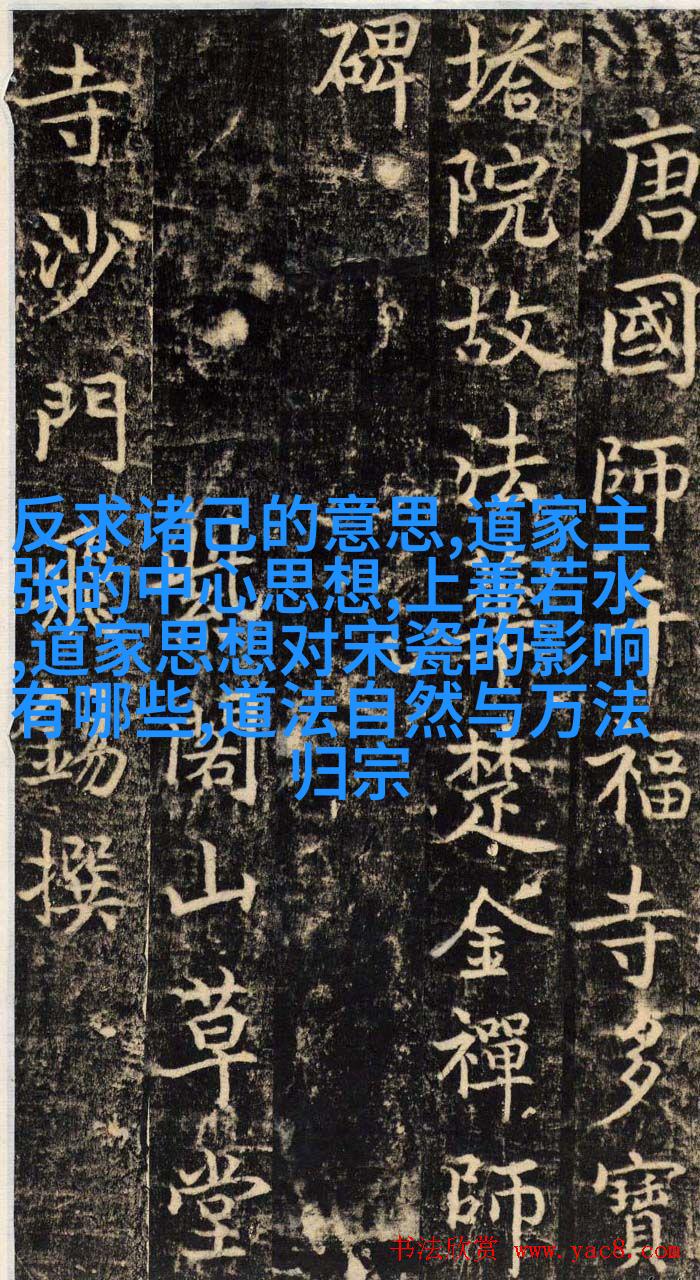 唐國師千福寺多寶
塔院故法華楚金禪師
碑
閣山草堂
寺沙門飛錫撰
反求诸己的意思,道家主
张的中心思想,上善若水
,道家思想对宋瓷的影响
有哪些,道法自然与万法
归宗
书法欣赏 www.yac8.com